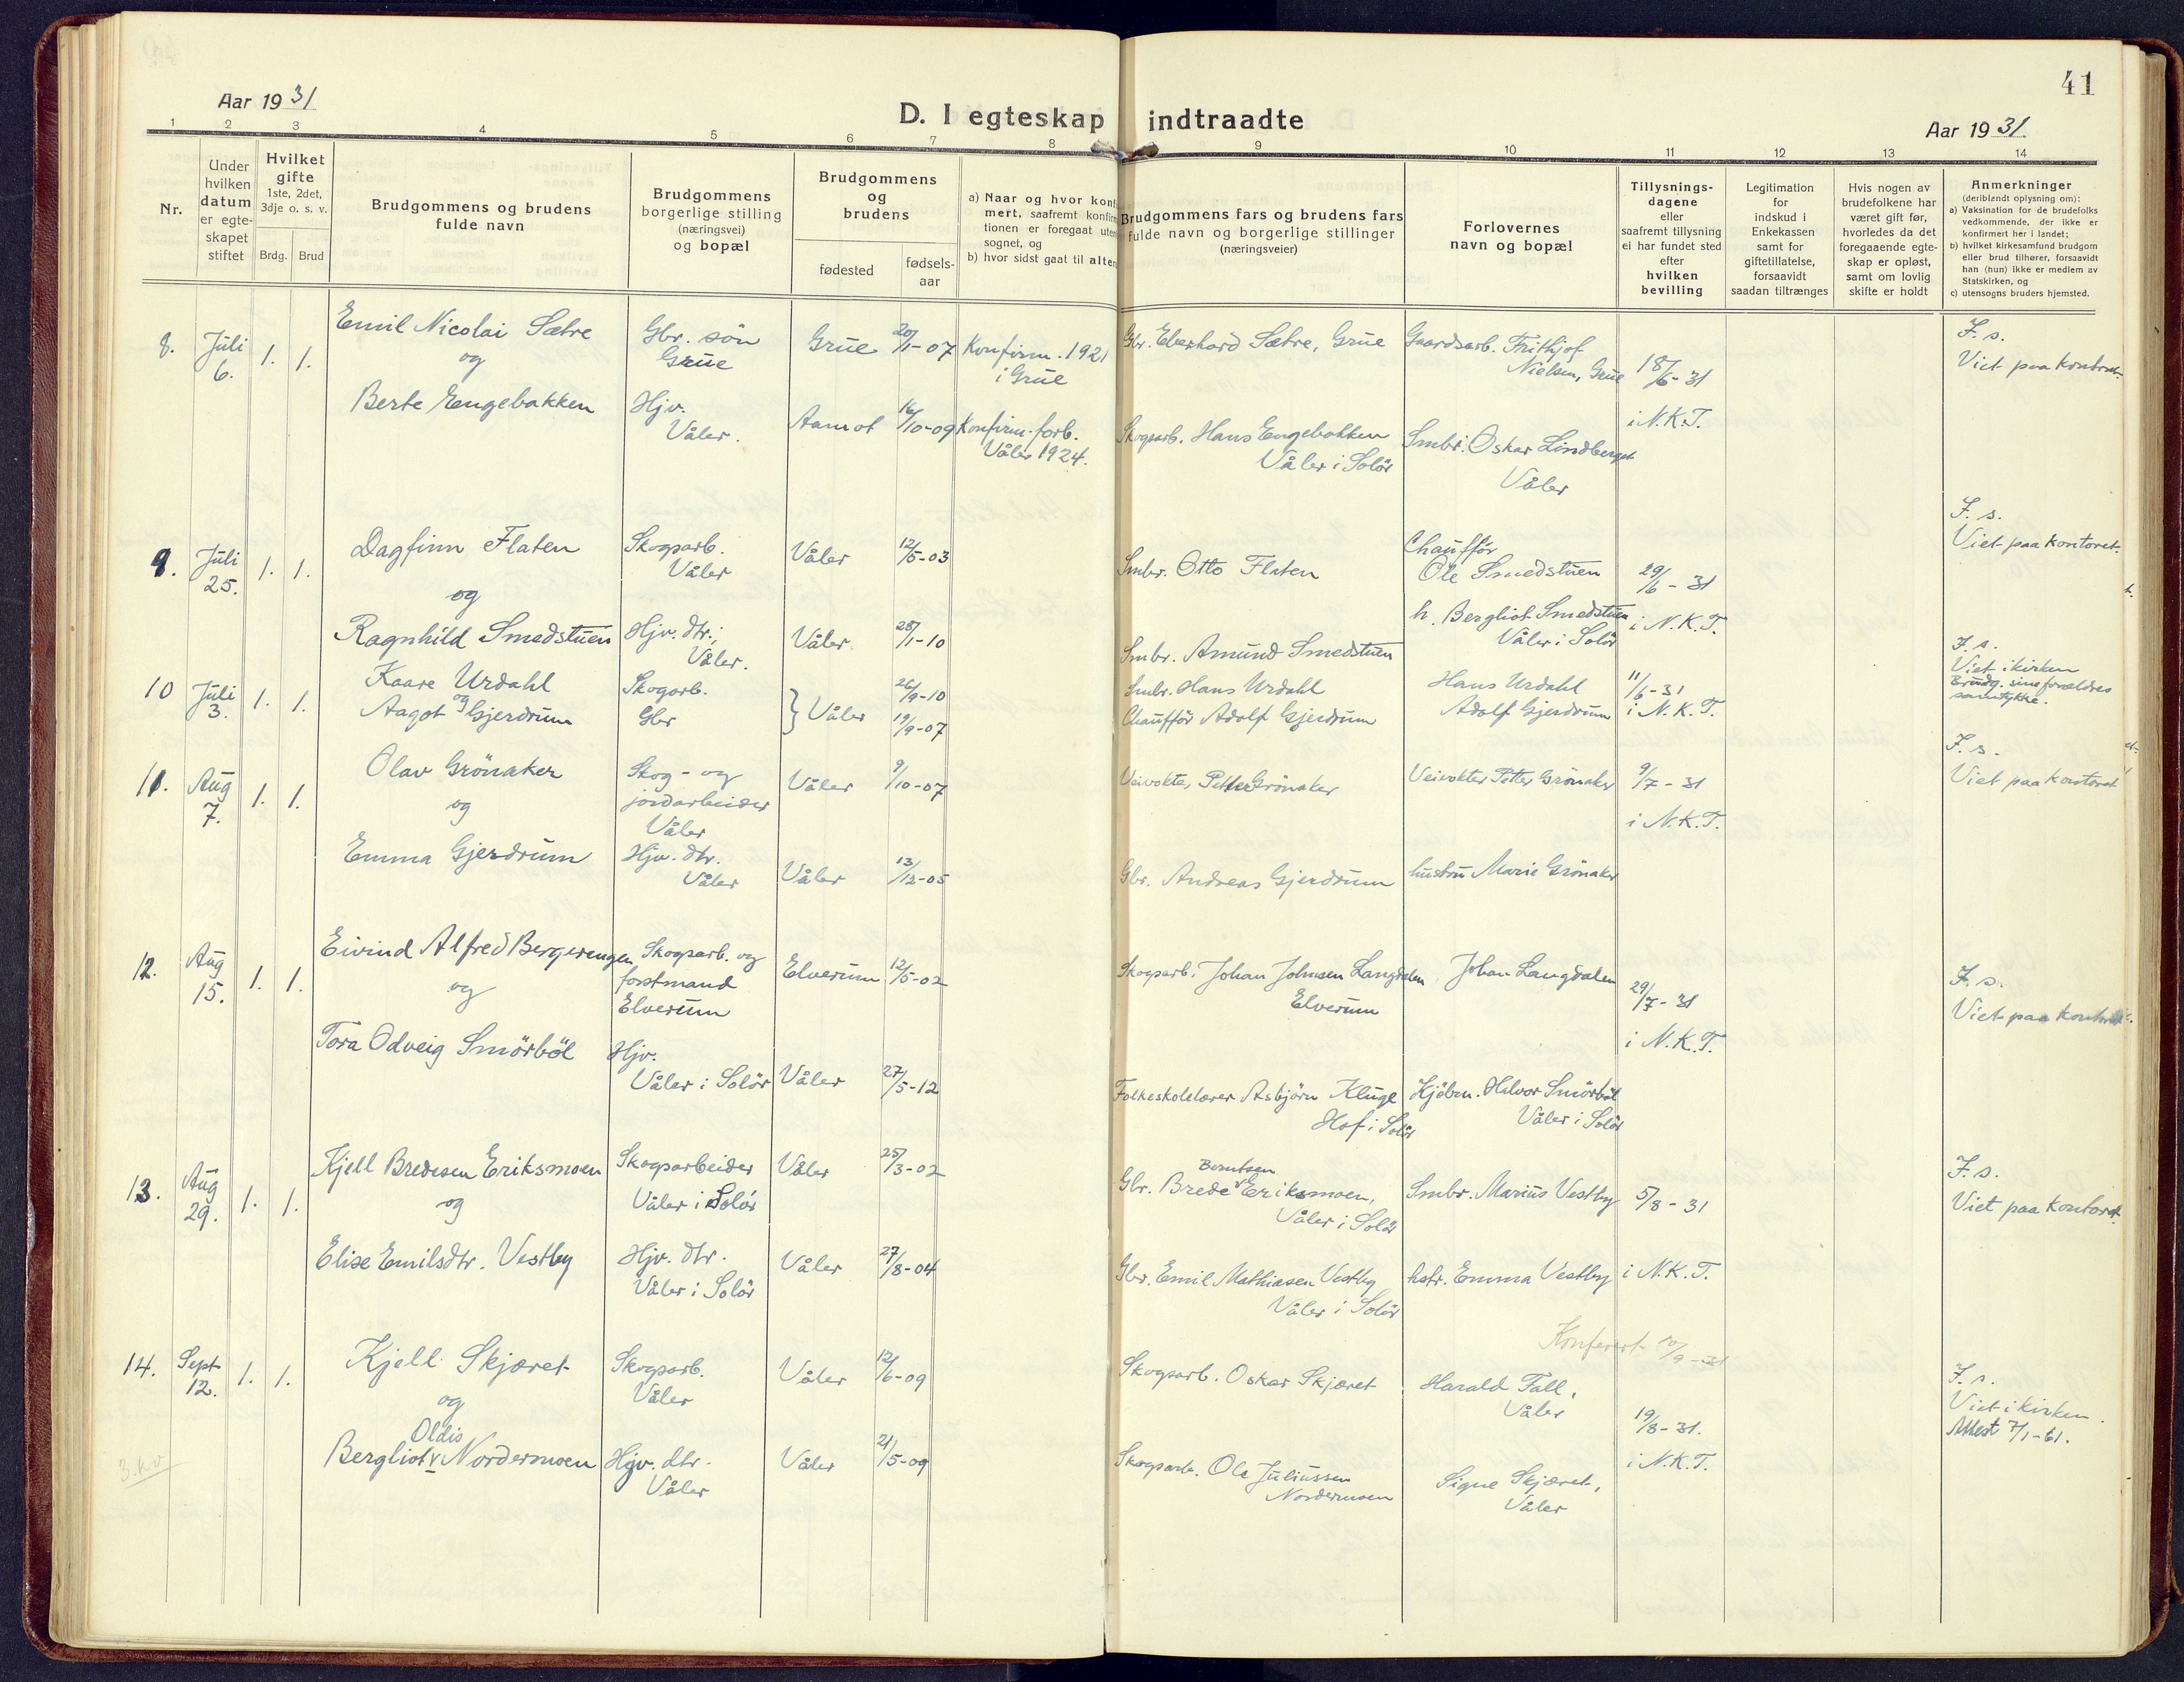 41
Aar 1931
D. I egteskap indtraadte
Aar 1931.
1 2 3 4 5 6 7 8 9 10 11 12 13 14
Nr.
Under
hvilken
datum
er egte-
skapet
stiftet
Hvilket
gifte
1ste, 2det,
3dje o. s. v.
Brdg. Brud
Brudgommens og brudens
fulde navn
Brudgommens
borgerlige stilling
(næringsvei)
og bopæl
Brudgommens
og
brudens
fødested
fødsels-
aar
a) Naar og hvor konf
mert, saafremt konfir
tionen er foregaat uten
sognet, og
b) hvor sidst gaat til alter
Brudgommens fars og brudens fars
fulde navn og borgerlige stillinger
(næringsveier)
Forlovernes
navn og bopæl
Tillysnings-
dagene
eller
saafremt tillysning
ei har fundet sted
efter
hvilken
bevilling
Legitimation
for
indskud i
Enkekassen
samt for
giftetillatelse,
forsaavidt
saadan tiltrænges
Hvis nogen av
brudefolkene har
været gift før,
hvorledes da det
foregaaende egte-
skap er opløst,
samt om lovlig
skifte er holdt
Anmerkninger
(deriblandt oplysning om):
a) Vaksination for de brudefolks
vedkommende, der ikke er
konfirmert her i landet;
b) hvilket kirkesamfund brudgom
eller brud tilhører, forsaavidt
han (hun) ikke er medlem av
Statskirken, og
c) utensogns bruders hjemsted.
8. Juli 6. 1. 1.
Emil Nicolai Sætre
og
Berte Engebakken
Gbr. søn
Grue
Hjv.
Våler.
Grue 20/1-07
Aamot 16/10-09
Konfirm. 1921
i Grue
Konfirm. forb.
Våler 1924.
Gbr. Eberhard Sætre, Grue
Skogsarb. Hans Engebakken
Våler i Solør
Gaardsarb. Frithjof
Nielsen, Grue
Smbr. Oskar Lindberget
Våler
18/6-31
i N.K.T.
F. s.
Viet paa kontoret.
9. Juli 25. 1. 1.
Dagfinn Flaten
og
Ragnhild Smedstuen
Skogsarb.
Våler
Hjv. dtr.;
Våler.
Våler 12/5-03
Våler 28/1-10
Smbr. Otto Flaten
Smbr. Amund Smedstuen
Chauffør
Ole Smedstuen
h. Bergliot Smedstuen
Våler i Solør
29/6-31
i N.K.T.
F. s.
Viet paa kontoret.
10 Juli 3. 1. 1.
Kaare Urdahl
og
Aagot Gjerdrum
Skogarb.
Gbr
} Våler
26/9-10
19/9-07
Smbr. Hans Urdahl
Chauffør Adolf Gjerdrum
Hans Urdahl
Adolf Gjerdrum
11/6-31
i N.K.T.
F. s.
Viet i kirken
Brudg. sine forældres
samtykke.
11. Aug 7. 1. 1.
Olav Grønaker
og
Emma Gjerdrum
Skog- og
jordarbeider
Våler
Hjv. dtr.
Våler
Våler 9/10-07
Våler 13/12-05
Veivokter, Petter Grønaker
Gbr. Andreas Gjerdrum
Veivokter Petter Grønaker
hustru Marie Grønaker
9/7-31
i N.K.T.
F. s.
Viet paa kontoret
12. Aug 15. 1. 1.
Eivind Alfred Bergerengen
og
Tora Odveig Smørbøl
Skogsarb. og
forstmand
Elverum
Hjv.
Våler i Solør
Elverum 12/5-02
Våler 27/5-12
Skogsarb. Johan Johnsen Langdalen
Elverum
Folkeskolelærer Asbjørn Kluge
Hof i Solør
Johan Langdalen
Kjøbm. Halvor Smørbøl
Våler i Solør
29/7-31
i N.K.T.
F. s.
Viet paa kontoret.
13. Aug 29. 1. 1.
Kjell Bredesen Eriksmoen
og
Elise Emilsdtr. Vestby
Skogsarbeider
Våler i Solør
Hjv. dtr.
Våler i Solør
Våler 25/3-02
Våler 27/8-04
Berntsen
Gbr. Brede Eriksmoen,
Våler i Solør
Gbr. Emil Mathiasen Vestby
Våler i Solør
Smbr. Marius Vestby
hstr. Emma Vestby
5/8-31
i N.K.T.
F. s.
Viet paa kontoret.
Konferert 10/9-31
14. Sept 12. 1. 1.
Kjell Skjæret
og
Oldis
Bergliot v Nordermoen
Skogsarb.
Våler
Hjv. dtr.
Våler
Våler 12/6-09
Våler 21/5-09
Skogsarb. Oskar Skjæret
Skogsarb. Ole Juliussen
Nordermoen
Harald Fall,
Våler
Signe Skjæret,
Våler
19/8-31.
i N.K.T.
F. s.
Viet i kirken.
Attest 7/1-61.